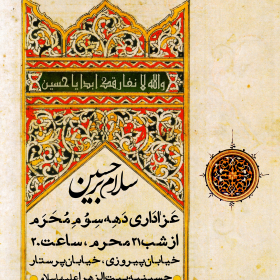 والله لا نفارقك ابدا یا حسین
سلام بر حسین
عزاداری دهه سوم محرم
از شب ۲۱ محرم، ساعت ۲۰
خیابان پیروزی، خیابان پرستار
حسینیه بیت الزهرا علیهاسلام